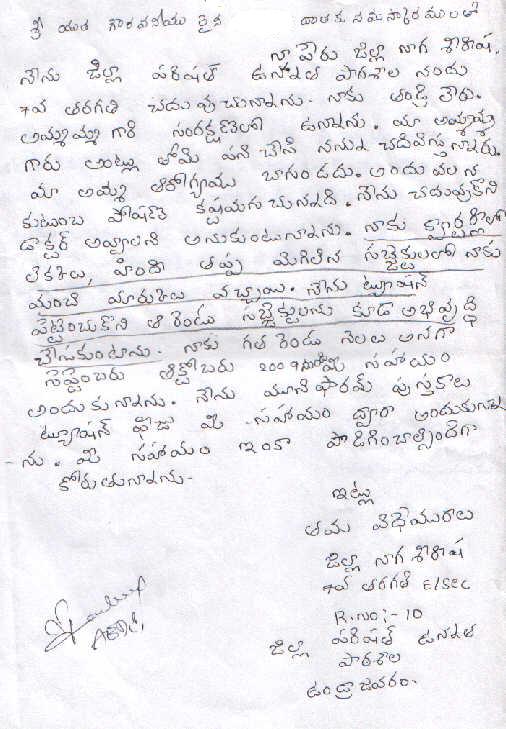 శ్రీ యుత గౌరవనీయులైన దాతకు నమస్కారములతో
నా పేరు జిల్లా నాగ శిరీష,
నేను జిల్లా పరిషత్ ఉన్నత పాఠశాల నందు
7వ తరగతి చదువుచున్నాను. నాకు తండ్రి లేరు.
అమ్మమ్మ గారి సంరక్షణలో ఉన్నాను. మా అమ్మమ్మ
గారు అంట్లు తోమి పని చేసి నన్ను చదివిస్తున్నారు.
మా అమ్మ ఆరోగ్యము బాగుండదు. అందు వలన
కుటుంబ పోషణ కష్టమగుచున్నది. నేను చదువుకొని
డాక్టర్ అవ్వాలని అనుకుంటున్నాను. నాకు క్వార్టర్లీలో
లెక్కలు, హిందీ తప్ప మిగిలిన సబ్జెక్టులలో నాకు
మంచి మార్కులు వచ్చాయి. నేను ట్యూషన్
పెట్టించుకొని ఆ రెండు సబ్జెక్టులను కూడా అభివృద్ధి
చేసుకుంటాను. నాకు గత రెండు నెలలు అనగా
సెప్టెంబరు ఆక్టోబరు 2009 నుండి మీ సహాయం
అందుకున్నాను. నేను యూనిఫారమ్ పుస్తకాలు
ట్యూషన్ ఫీజు మీ సహాయం ద్వారా అందుకున్నా
ను. మీ సహాయం ఇంకా పొడిగించాల్సిందిగా
కోరుతున్నాను.
ఇట్లు
తమ విధేయురాలు
జిల్లా నాగ శిరీష
7వ తరగతి E/SEC
R.NO:- 10
జిల్లా పరిషత్ ఉన్నత
పాఠశాల
ఉండ్రాజవరం.